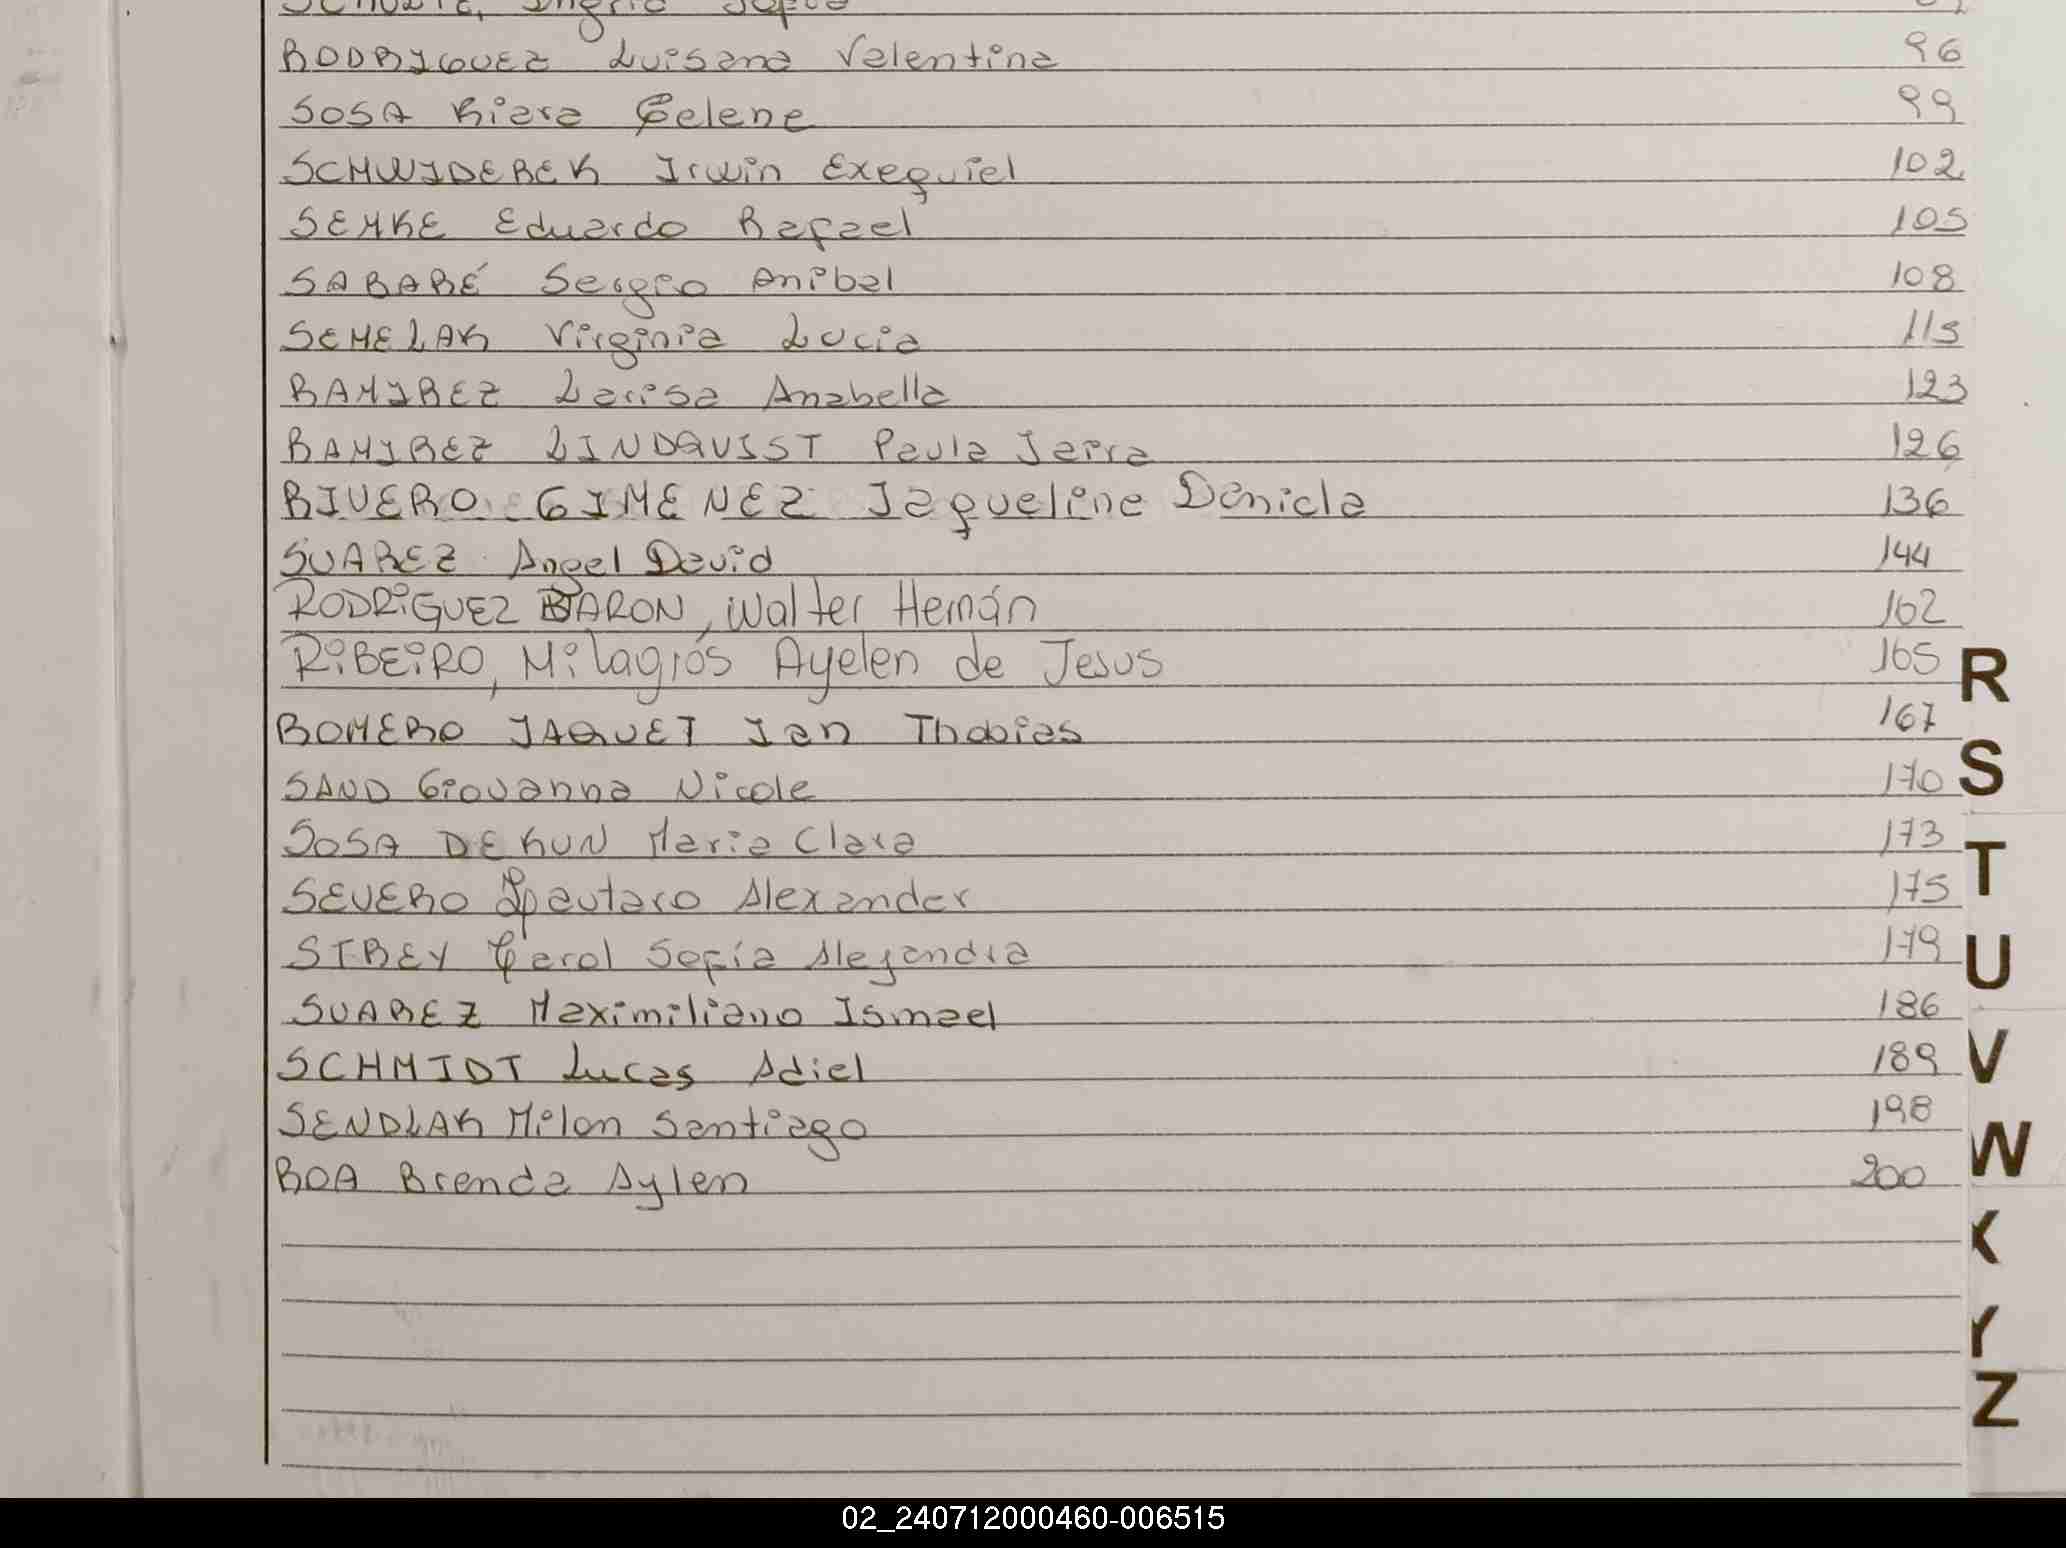 RODRIGUEZ Luisana Valentina 96
SOSA Kiara Celene 99
SCHWIDEREK Irwin Exequiel 102
SEMKE Eduardo Rafael 105
SABARÉ Sergio Anibal 108
SEMELAK Virginia Lucia 115
RAMIREZ Larisa Anabella 123
RAMIREZ LINDQUIST Paula Jaira 126
RIVERO GIMENEZ Jaqueline Daniela 136
SUAREZ Angel David 144
RODRiGUEZ BARON, Walter Hernán 162
RiBEiRO, Milagros Ayelen de Jesus 165
ROMERO JAQUET Ian Thobias 167
SAND Giovanna Nicole 170
SOSA DEKUN Maria Clara 173
SEVERO Lautaro Alexander 175
STREY Carol Sofía Alejandra 179
SUAREZ Maximiliano Ismael 186
SCHMIDT Lucas Adiel 189
SENDLAK Milon Santiago 198
ROA Brenda Aylen 200
R
S
T
U
V
W
X
Y
Z
02_240712000460-006515